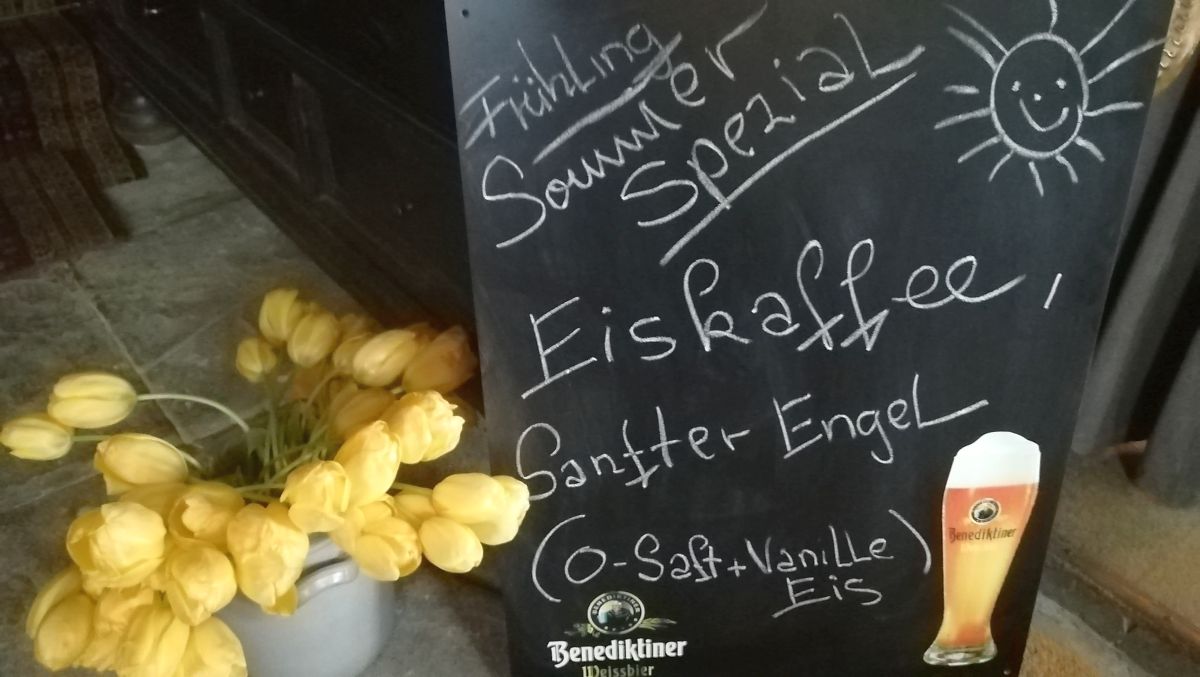 Frühling
Sommer
Spezial
Eiskaffee,
Sanfter Engel
(O-Saft+Vanille)
Eis
BENEDIKTINER
Benediktiner
Weissbier
Benediktiner